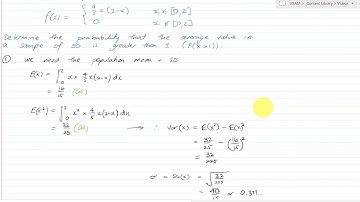 SOMA > Content Library > Videos
f(x) = { 4/5 x(2-x) x ∈ [0,2]
0 x ∉ [0,2]
Determine the probability that the average value in
a sample of 50 is greater than 1. (P(x̄>1)).
① We need the population mean + SD.
E(x) = ∫₀² x × 4/5 x(2-x) dx
= 16/15 (CAS)
E(x²) = ∫₀² x² × 4/5 x(2-x) dx
= 32/25 (CAS) → ∴ Var(x) = E(x²) - E(x)²
= 32/25 - (16/15)²
= 32/225
σ = SD(x) = √32/225
= 4√2/15 ≈ 0.377...